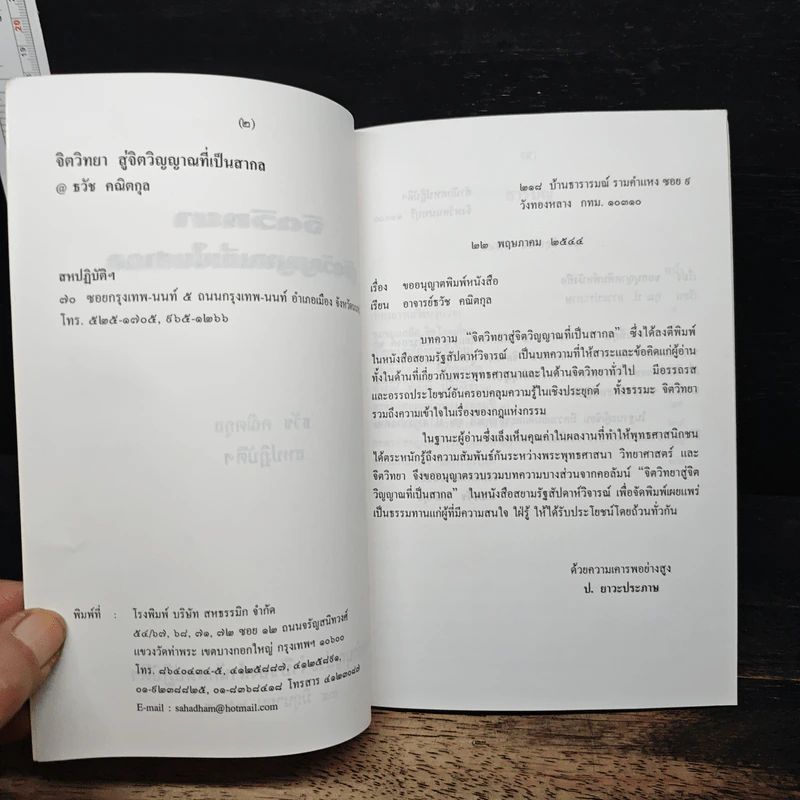 (๒)
จิตวิทยา สู่จิตวิญญาณที่เป็นสากล
@ ธวัช คณิตกุล
สหปฏิบัติฯ
๗๐ ซอยกรุงเทพ-นนท์ ๕ ถนนกรุงเทพ-นนท์ อำเภอเมือง
โทร. ๕๒๕-๑๗๐๕, ๙๖๕-๑๒๖๖
พิมพ์ที่ : โรงพิมพ์ บริษัท สหธรรมิก จำกัด
๕๔/๖๗, ๖๘, ๗๑, ๗๒ ซอย ๑๒ ถนนจรัญสนิทวงศ์
แขวงวัดท่าพระ เขตบางกอกใหญ่ กรุงเทพฯ ๑๐๖๐๐
โทร. ๘๖๔๐๔๓๔-๕, ๔๑๒๕๘๘๗, ๔๑๒๕๘๙๑,
๐๑-๙๒๓๘๘๒๕, ๐๑-๘๓๖๘๔๑๘ โทรสาร ๔๑๒๓๐๘๗
E-mail : sahadham@hotmail.com
๒๑๘ บ้านธารารมณ์ รามคำแหง ซอย ๙
วังทองหลาง กทม. ๑๐๓๑๐
๒๒ พฤษภาคม ๒๕๔๔
เรื่อง ขออนุญาตพิมพ์หนังสือ
เรียน อาจารย์ธวัช คณิตกุล
บทความ “จิตวิทยาสู่จิตวิญญาณที่เป็นสากล” ซึ่งได้ลงตีพิมพ์
ในหนังสือสยามรัฐสัปดาห์วิจารณ์ เป็นบทความที่ให้สาระและข้อคิดแก่ผู้อ่าน
ทั้งในด้านที่เกี่ยวกับพระพุทธศาสนาและในด้านจิตวิทยาทั่วไป มีอรรถรส
และอรรถประโยชน์อันครอบคลุมความรู้ในเชิงประยุกต์ ทั้งธรรมะ จิตวิทยา
รวมถึงความเข้าใจในเรื่องของกฎแห่งกรรม
ในฐานะผู้อ่านซึ่งเล็งเห็นคุณค่าในผลงานที่ทำให้พุทธศาสนิกชน
ได้ตระหนักรู้ถึงความสัมพันธ์กันระหว่างพระพุทธศาสนา วิทยาศาสตร์ และ
จิตวิทยา จึงขออนุญาตรวบรวมบทความบางส่วนจากคอลัมน์ “จิตวิทยาสู่จิต
วิญญาณที่เป็นสากล” ในหนังสือสยามรัฐสัปดาห์วิจารณ์ เพื่อจัดพิมพ์เผยแพร่
เป็นธรรมทานแก่ผู้ที่มีความสนใจ ใฝ่รู้ ให้ได้รับประโยชน์โดยถ้วนทั่วกัน
ด้วยความเคารพอย่างสูง
ป. ยาวะประภาษ